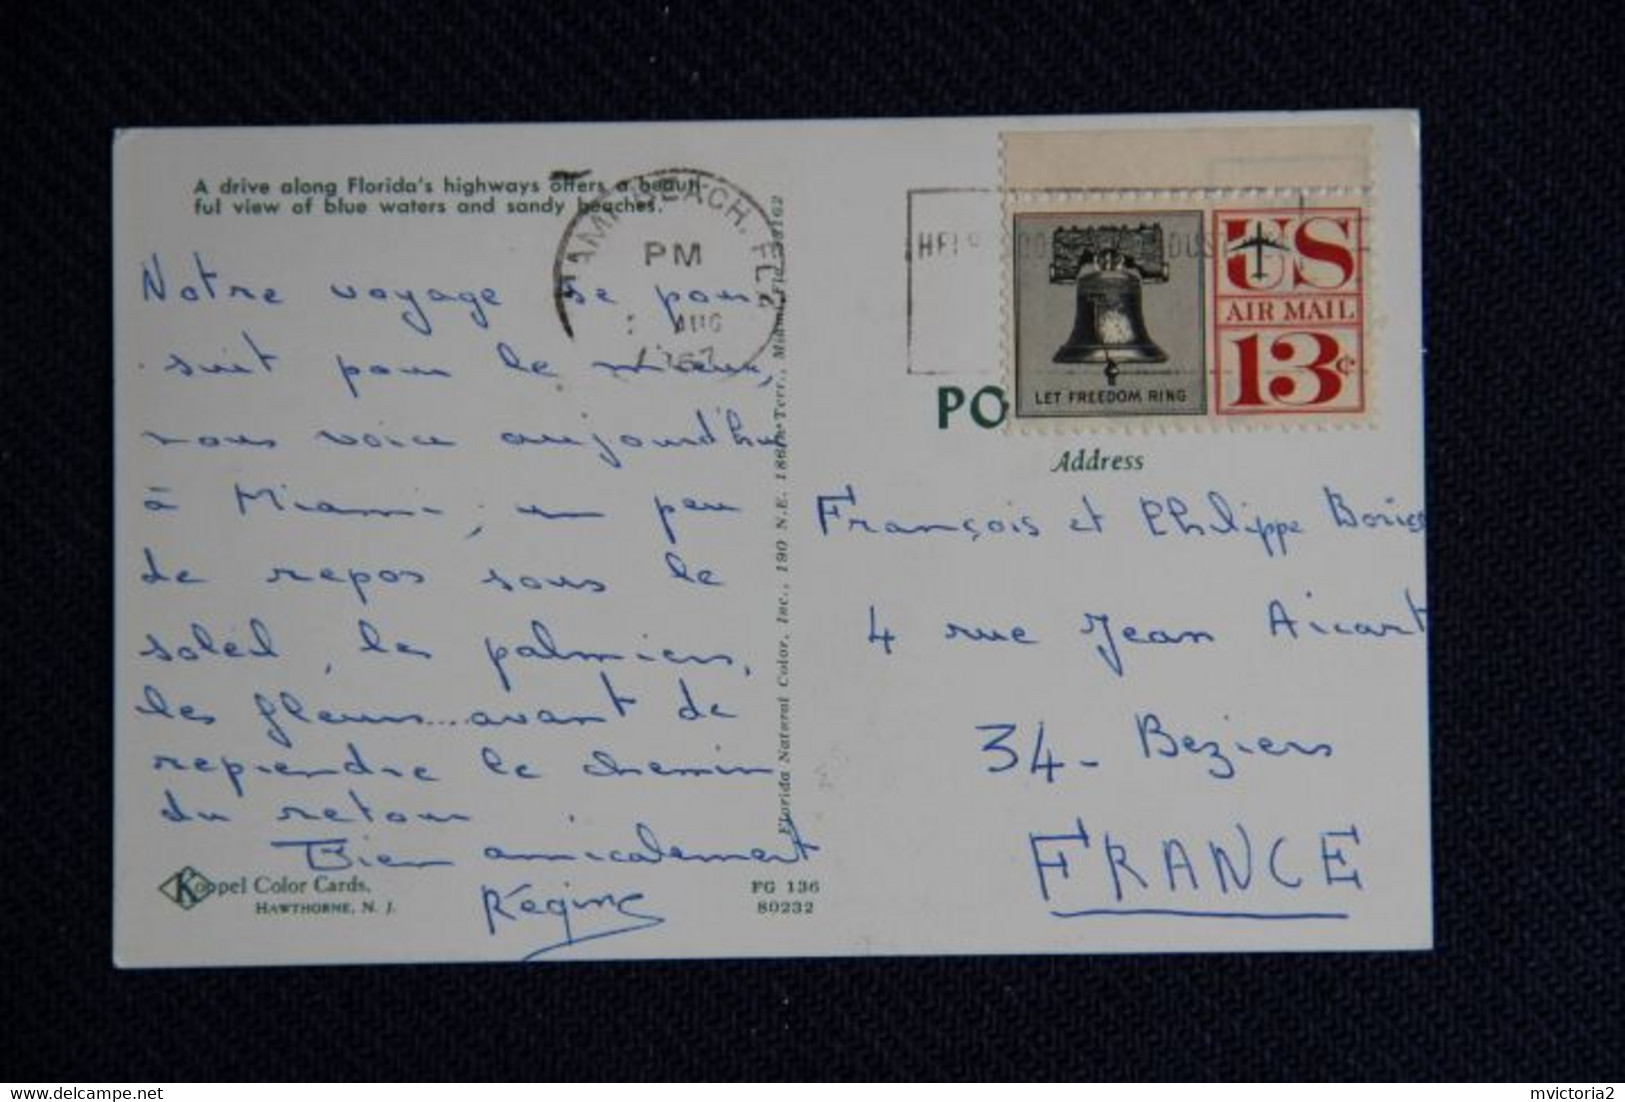 A drive along Florida's highways offers a beauti-
ful view of blue waters and sandy beaches.
Notre voyage se pour
suit pour le mieux,
nous voici aujourd'hui
à Miami, un peu
de repos sous le
soleil, les palmiers,
les fleurs... avant de
reprendre le chemin
du retour
Bien amicalement
Régine
Koppel Color Cards,
HAWTHORNE, N. J.
FG 136
80232
Florida Natural Color, Inc., 190 N.E. 186th Terr., Miami, Fla. 33162
MIAMI BEACH, FL
PM
AUG
1967
HEL
US
AIR MAIL
13¢
LET FREEDOM RING
PO
Address
François et Philippe
4 rue Jean Aicart
34 - Beziers
FRANCE
mvictoria2